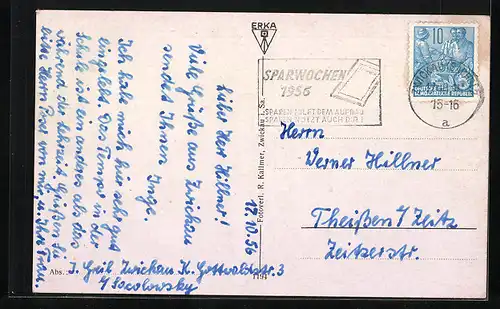 ERKA
10
DEUTSCHE
DEMOKRATISCHE REPUBLIK
SPARWOCHEN
1956
SPAREN HILFT DEM AUFBAU
SPAREN NÜTZT AUCH DIR!
15-16
a
Herrn
Werner Hillner
Theißen/Zeitz
Zeitzerstr.
17.10.56
Lieber Herr Hillner!
Viele Grüße aus Zwickau
sendet Ihnen Inge.
Ich habe mich hier sehr gut
eingelebt. Das Tempo in der
Schule ist ein anderes als das
während der Lehrzeit. Grüßen Sie
bitte Herrn von mir, u. Ihre Frau.
Abs.: I. Geil Zwickau K. Gottwaldstr. 3
b/ Socolowsky
Fotoverl. R. Kallmer, Zwickau i. Sa.